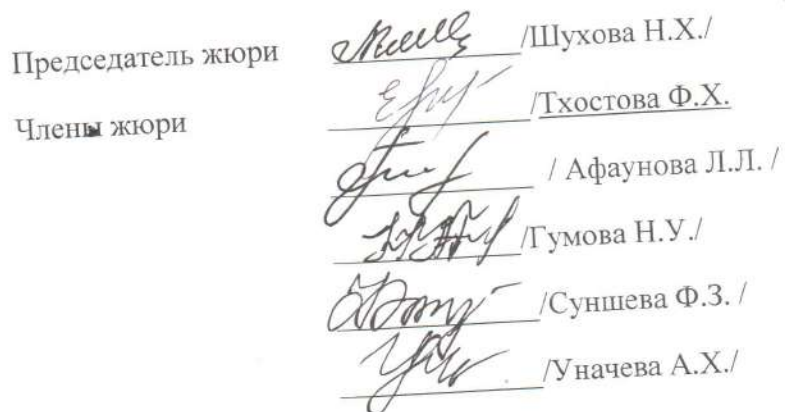 Председатель жюри /Шухова Н.Х./
Члены жюри /Тхостова Ф.Х.
/ Афаунова Л.Л. /
/Гумова Н.У./
/Суншева Ф.З. /
/Уначева А.Х./